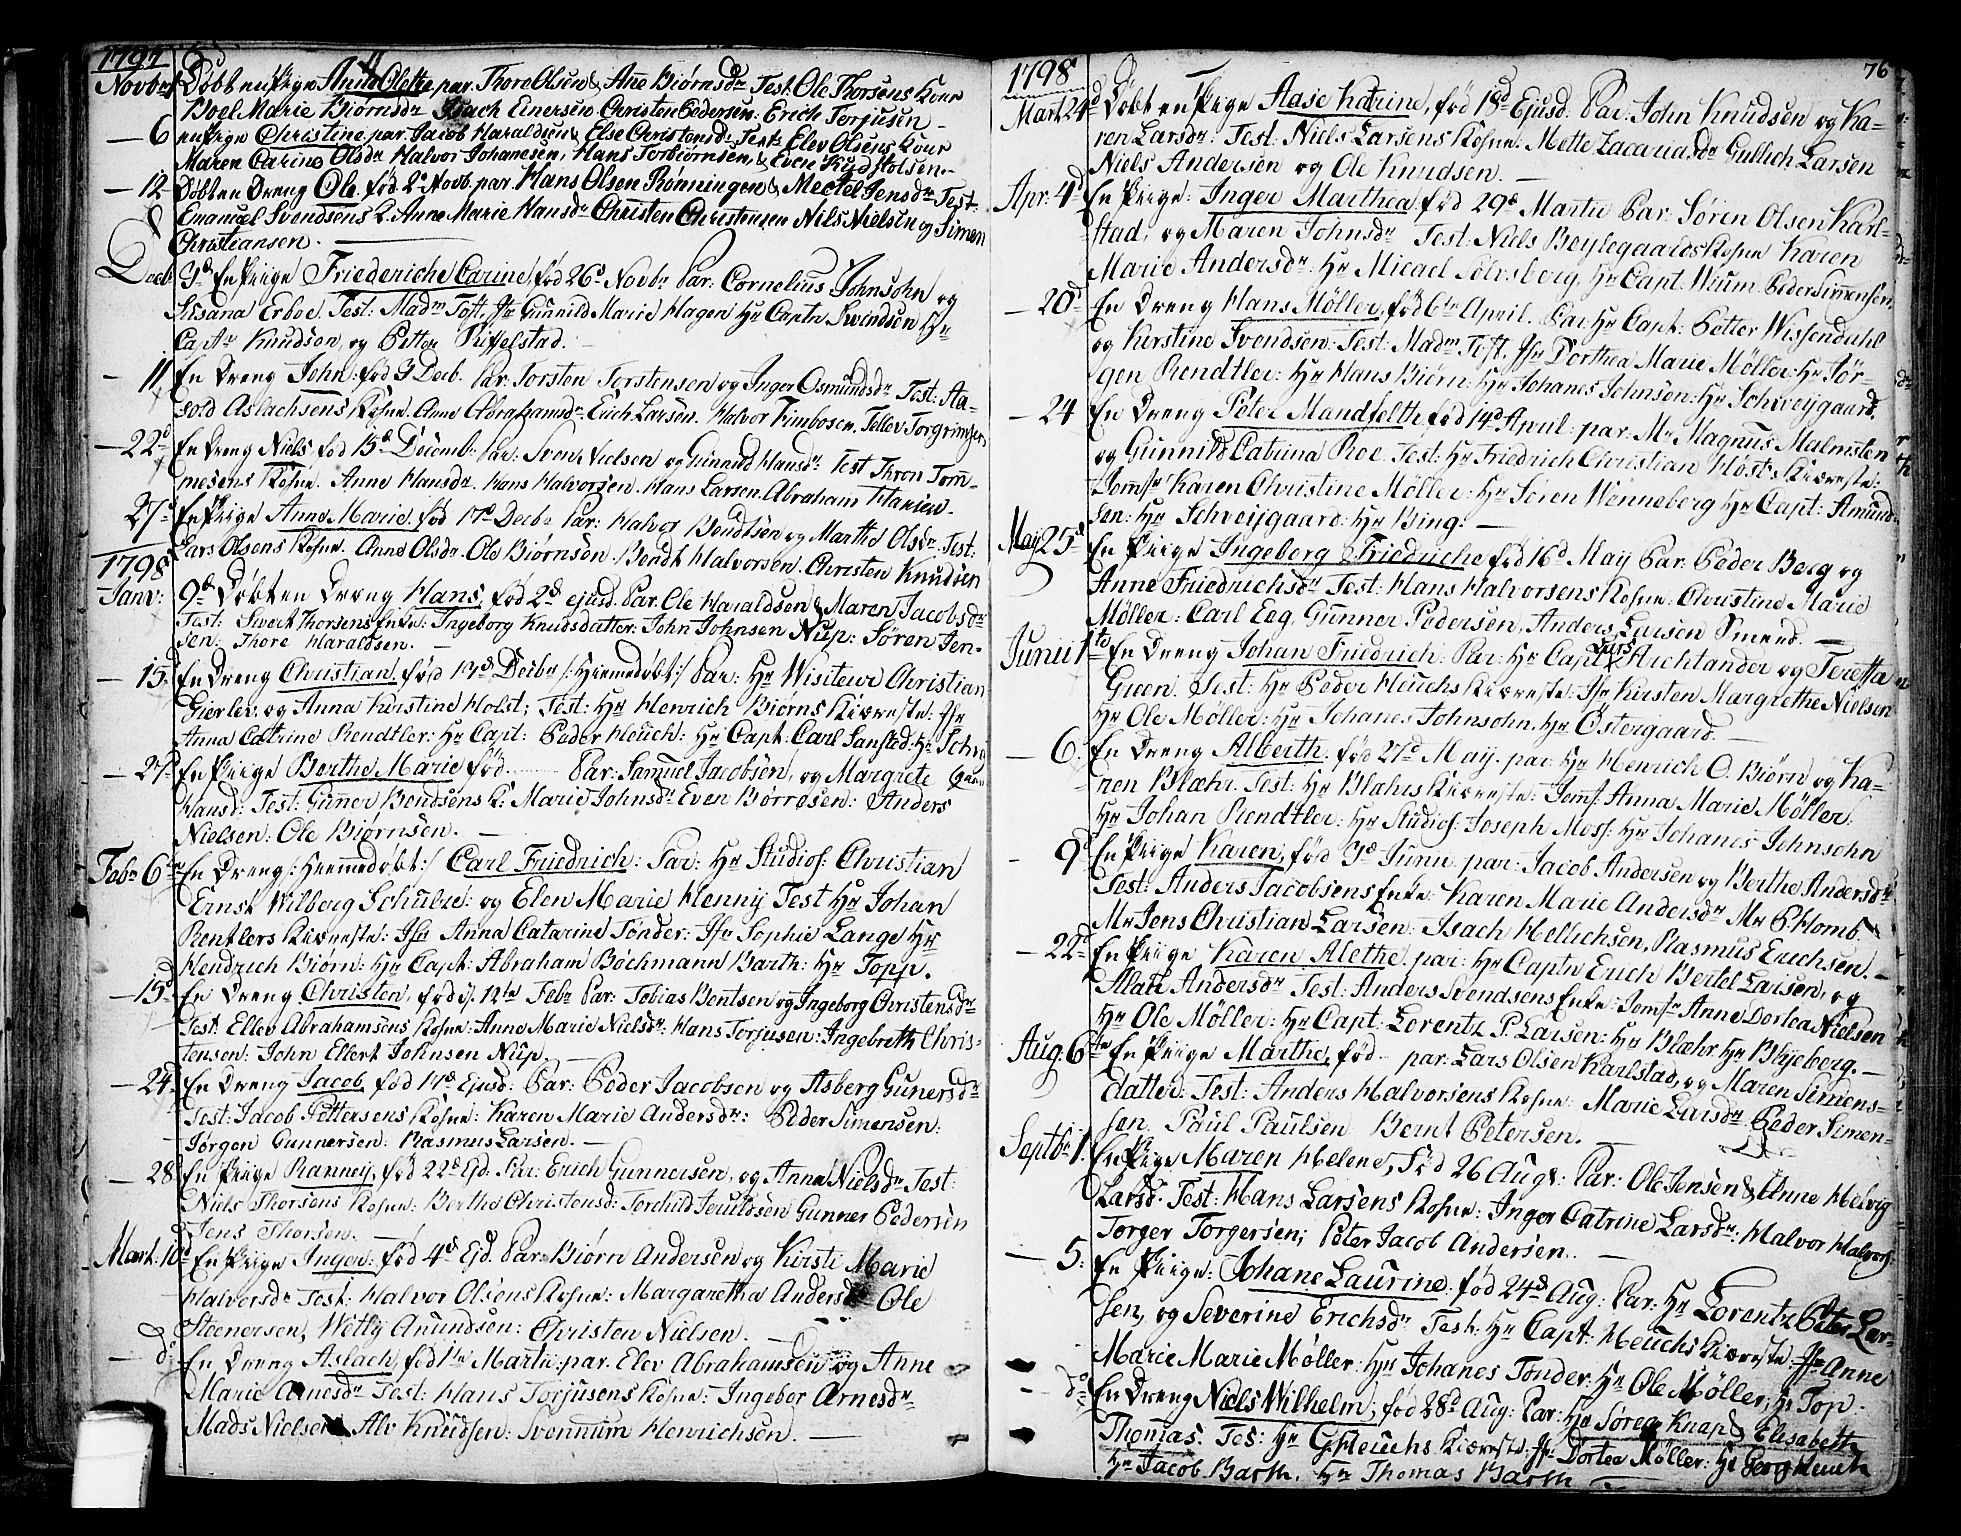 1797
Novbr Døbt en Pige Anna Olette par. Thore Olsen & Ane Biørnsdr Test. Ole Thorsens Kone
Boel Marie Biørnsdr Isach Einersen Christen Pedersen. Erich Torjusen
— 6 en Pige Christine par. Jacob Haraldsen & Else Christensdr Test: Elev Olsens Kone
Maren Carine Olsdr Halvor Johanesen, Hans Torbiørnsen, & Even
— 12 Døbt en Dreng Ole, fød 2d Novb. par. Hans Olsen Rønningen & Mechel Jensdr Test.
Emanuel Svendsens K. Anne Marie Hansdr Christen Christensen Nils Nielsen og Simen
Christiansen. —
Decb. 3d En Piige Friederiche Carine, fød 26d Novbr Par: Cornelius Johnsohn og
Susana Erboe. Test: Madm Toft. Jfr Gunnild Marie Hagen Hr Captn Svendsen Hr
Captn Knudsen, og Petter Riffelstad.
— 11 En Dreng John: fød 3 Decb. Par: Torsten Torstensen og Inger Osmundsdr Test: Aa-
sold Aslachsens Kone. Anne Abrahamsdr Erich Larsen. Halvor Kimbosen, Tellev Torgrimsen
— 22d En Dreng Niels fød 15d Decemb: Par: Sven Nielsen og Gunnild Hansdr Test Thron Tom-
mesens Kone. Anne Hansdr. Hans Halvorsen. Hans Larsen. Abraham
27d En Piige Anne Marie. fød 17d Decbr Par: Halvor Bendtsen og Marthe Olsdr Test:
Lars Olsens Kone. Anne Olsdr. Ole Biørnsen. Bendt Halvorsen. Christen Knudsen
1798
Janv: 9d Døbt en Dreng Hans, fød 2d ejusd. Par. Ole Haraldsen & Maren Jacobsdr
Test: Sivert Thorsens Enke: Ingeborg Knudsdatter: John Johnsen Nup: Søren Jen-
sen: Thore Haraldsen. —
— 15. En Dreng Christian, fød 17d Decbr /:Hiemmedøbt:/ Par: Hr Visiteur Christian
Gierlev. og Anna Kirstine Holst; Test: Hr Henrich Biørns Kiæreste: Jfr
Anna Catrine Rendtler: Hr Capt: Peder Heuch: Hr Capt: Carl Sansted: Hr Schwei-
— 27d En Piige Berthe Marie fød ...... Par: Samuel Jacobsen, og Margrete
Hansd: Test: Gunner Bendsens K: Marie Johnsdr Even Børresen: Anders
Nielsen: Ole Biørnsen. —
Febr 6te En Dreng /:Hiemmedøbt:/ Carl Friedrich: Par: Hr Studios: Christian
Ernst Wilberg Schultze: og Elen Marie Henny Test Hr Johan
Rentlers Kiæreste: Jfr Anna Catarine Tønder: Jfr Sophie Lange Hr
Hendrich Biørn: Hr Capt: Abraham Bochmann Barth: Hr Topp.
— 15d En Dreng Christen, fød d. 12te Febr Par: Tobias Bentsen og Ingeborg Christensdr
Test: Ellev Abrahamsens Kone: Anne Marie Nielsdr: Hans Torjusen: Ingebreth Chris-
tensen: John Ellert Johnsen Nup. —
— 24. En Dreng Jacob, fød 17d Ejusd: Par: Peder Jacobsen og Asberg Gunersdr
Test: Jacob Pettersens Kone: Karen Marie Andersdr: Peder Simensen:
Jørgen Gunnersen: Rasmus Larsen. —
— 28 En Piige Ranney, fød 22d Ejd. Par: Erich Gunnersen, og Anne Nielsdr Test:
Niels Thorsens Kone: Berthe Christensd: Torchild Jeruldsen Gunner Pedersen
Jens Thorsen. —
Mart: 10d En Piige Inger: fød 4d Ejd. Par: Biørn Andersen og Kirsti Marie
Halvorsdr Test: Halvor Olsens Kone: Margaretha Andersdr Ole
Steenersen, Wetly Amundsen: Christen Nielsen. —
— do En Dreng Aslach, fød 1te Martii. par. Elev Abrahamsen og Anne
Marie Arnesdr Test: Hans Torjusens Kone: Ingebor Arnesdr
Mads Nielsen Alv Knudsen: Svennum Henrichsen. —
76
1798
Mart 24d Døbt en Piige Aase Katrine, fød 18d Ejusd. Par: John Knudsen og Ka-
ren Larsdr. Test. Niels Larsens Kone: Mette Zacariasdr Gullich Larsen
Niels Andersen og Ole Knudsen. —
Apr. 4d En Piige: Inger Marthea fød 29d Martii Par: Søren Olsen Karl-
stad, og Maren Johnsdr Test: Niels Beylegaards Kone Karen
Marie Andersdr. Hr Micael Sølrsberg, Hr Capt: Wium. Peder Simensen
— 20d En Dreng Hans Møller, fød 6te April. Par: Hr Capt: Petter Wissendahl
og Kerstine Svendsen: Test: Madm Toft, Jfr Dorthea Marie Møller: Hr Jør-
gen Rendtler: Hr Hans Biørn: Hr Johanes Johnsen: Hr Schweijgaard
— 24 En Dreng Peter Mandfelth fød 14d April: par. Mr Magnus Malmsten
og Gunnild Catrina Roe. Test: Hr Friedrich Christian Høsts Kiæreste:
Jomfr Karen Christine Møller: Hr Søren Wenneberg Hr Capt: Amund-
sen: Hr Schveijgaard: Hr Bing. —
May 25d En Piige Ingeborg Friedriche fød 16d May Par: Peder Berg og
Anne Friedrichsdr Test: Hans Halvorsens Kone: Christine Marie
Møller: Carl Eeg, Gunner Pedersen, Anders Larsen Smed. —
Junii 1te En Dreng Johan Friedrich: Par: Hr Capt Lars Archtander og Teretta
Green. Test: Hr Peder Heuchs Kiæreste: Jfr Kirsten Margrethe Nielsen
Hr Ole Møller: Hr Johanes Johnsohn. Hr Østergaard. —
— 6. En Dreng Alberth: fød 27d May. par: Hr Henrich O. Biørn og Ka-
ren Blæhr. Test: Hr Blæhrs Kiæreste: Jomf: Anna Marie Møller:
Hr Johan Rendtler: Hr Studios: Joseph Moss: Hr Johanes Johnsohn
— 9d En Piige Karen, fød 3d Junii par: Jacob Andersen og Berthe Andersdr
Test: Anders Jacobsens Enke: Karen Marie Andersdr Mr P. Homb.
Mr Jens Christian Larsen: Isach Hellichsen, Rasmus Erichsen. —
— 22d En Piige Karen Alethe. par: Hr Captn Erich Bertel Larsen, og
Alas Andersdr Test: Anders Svendsens Enke: Jomfr Anne Dortea Nielsen
Hr Ole Møller: Hr Capt: Lorentz P. Larsen: Hr Blæhr Hr Blyeberg. —
Aug. 6te En Piige Marthe, fød — par: Lars Olsen Karlstad, og Maren Simens-
datter: Test: Anders Halvorsens Kone: Marie Larsdr Peder Simen-
sen. Paul Paulsen Bernt Petersen. —
Septbr 1. En Pige Maren Helene, Fød 26 Aug: Par: Ole Jensen & Anne Helvig
Larsd: Test: Hans Larsens Kone: Inger Catrine Larsdr: Halvor Halvors:
Torger Torgersen; Peter Jacob Andersen. —
— 5. En Piige: Johane Laurine: fød 24d Aug: Par: Hr Lorentz Peter Lar-
sen, og Severine Erichsdr Test: Hr Capt: Heuchs Kiæreste Jfr Anne
Marie Marie Møller: Hr Johanes Tønder: Hr Ole Møller, Hr Top
— do En Dreng Niels Wilhelm; fød 28d Aug: Par: Hr Søren Knap & Elisabeth
Thomas. Tes: Hr G. Heuchs Kiæreste: Jfr Dortea Møller: Hr Georg Heuch
Hr Jacob Barth. Hr Thomas Barth